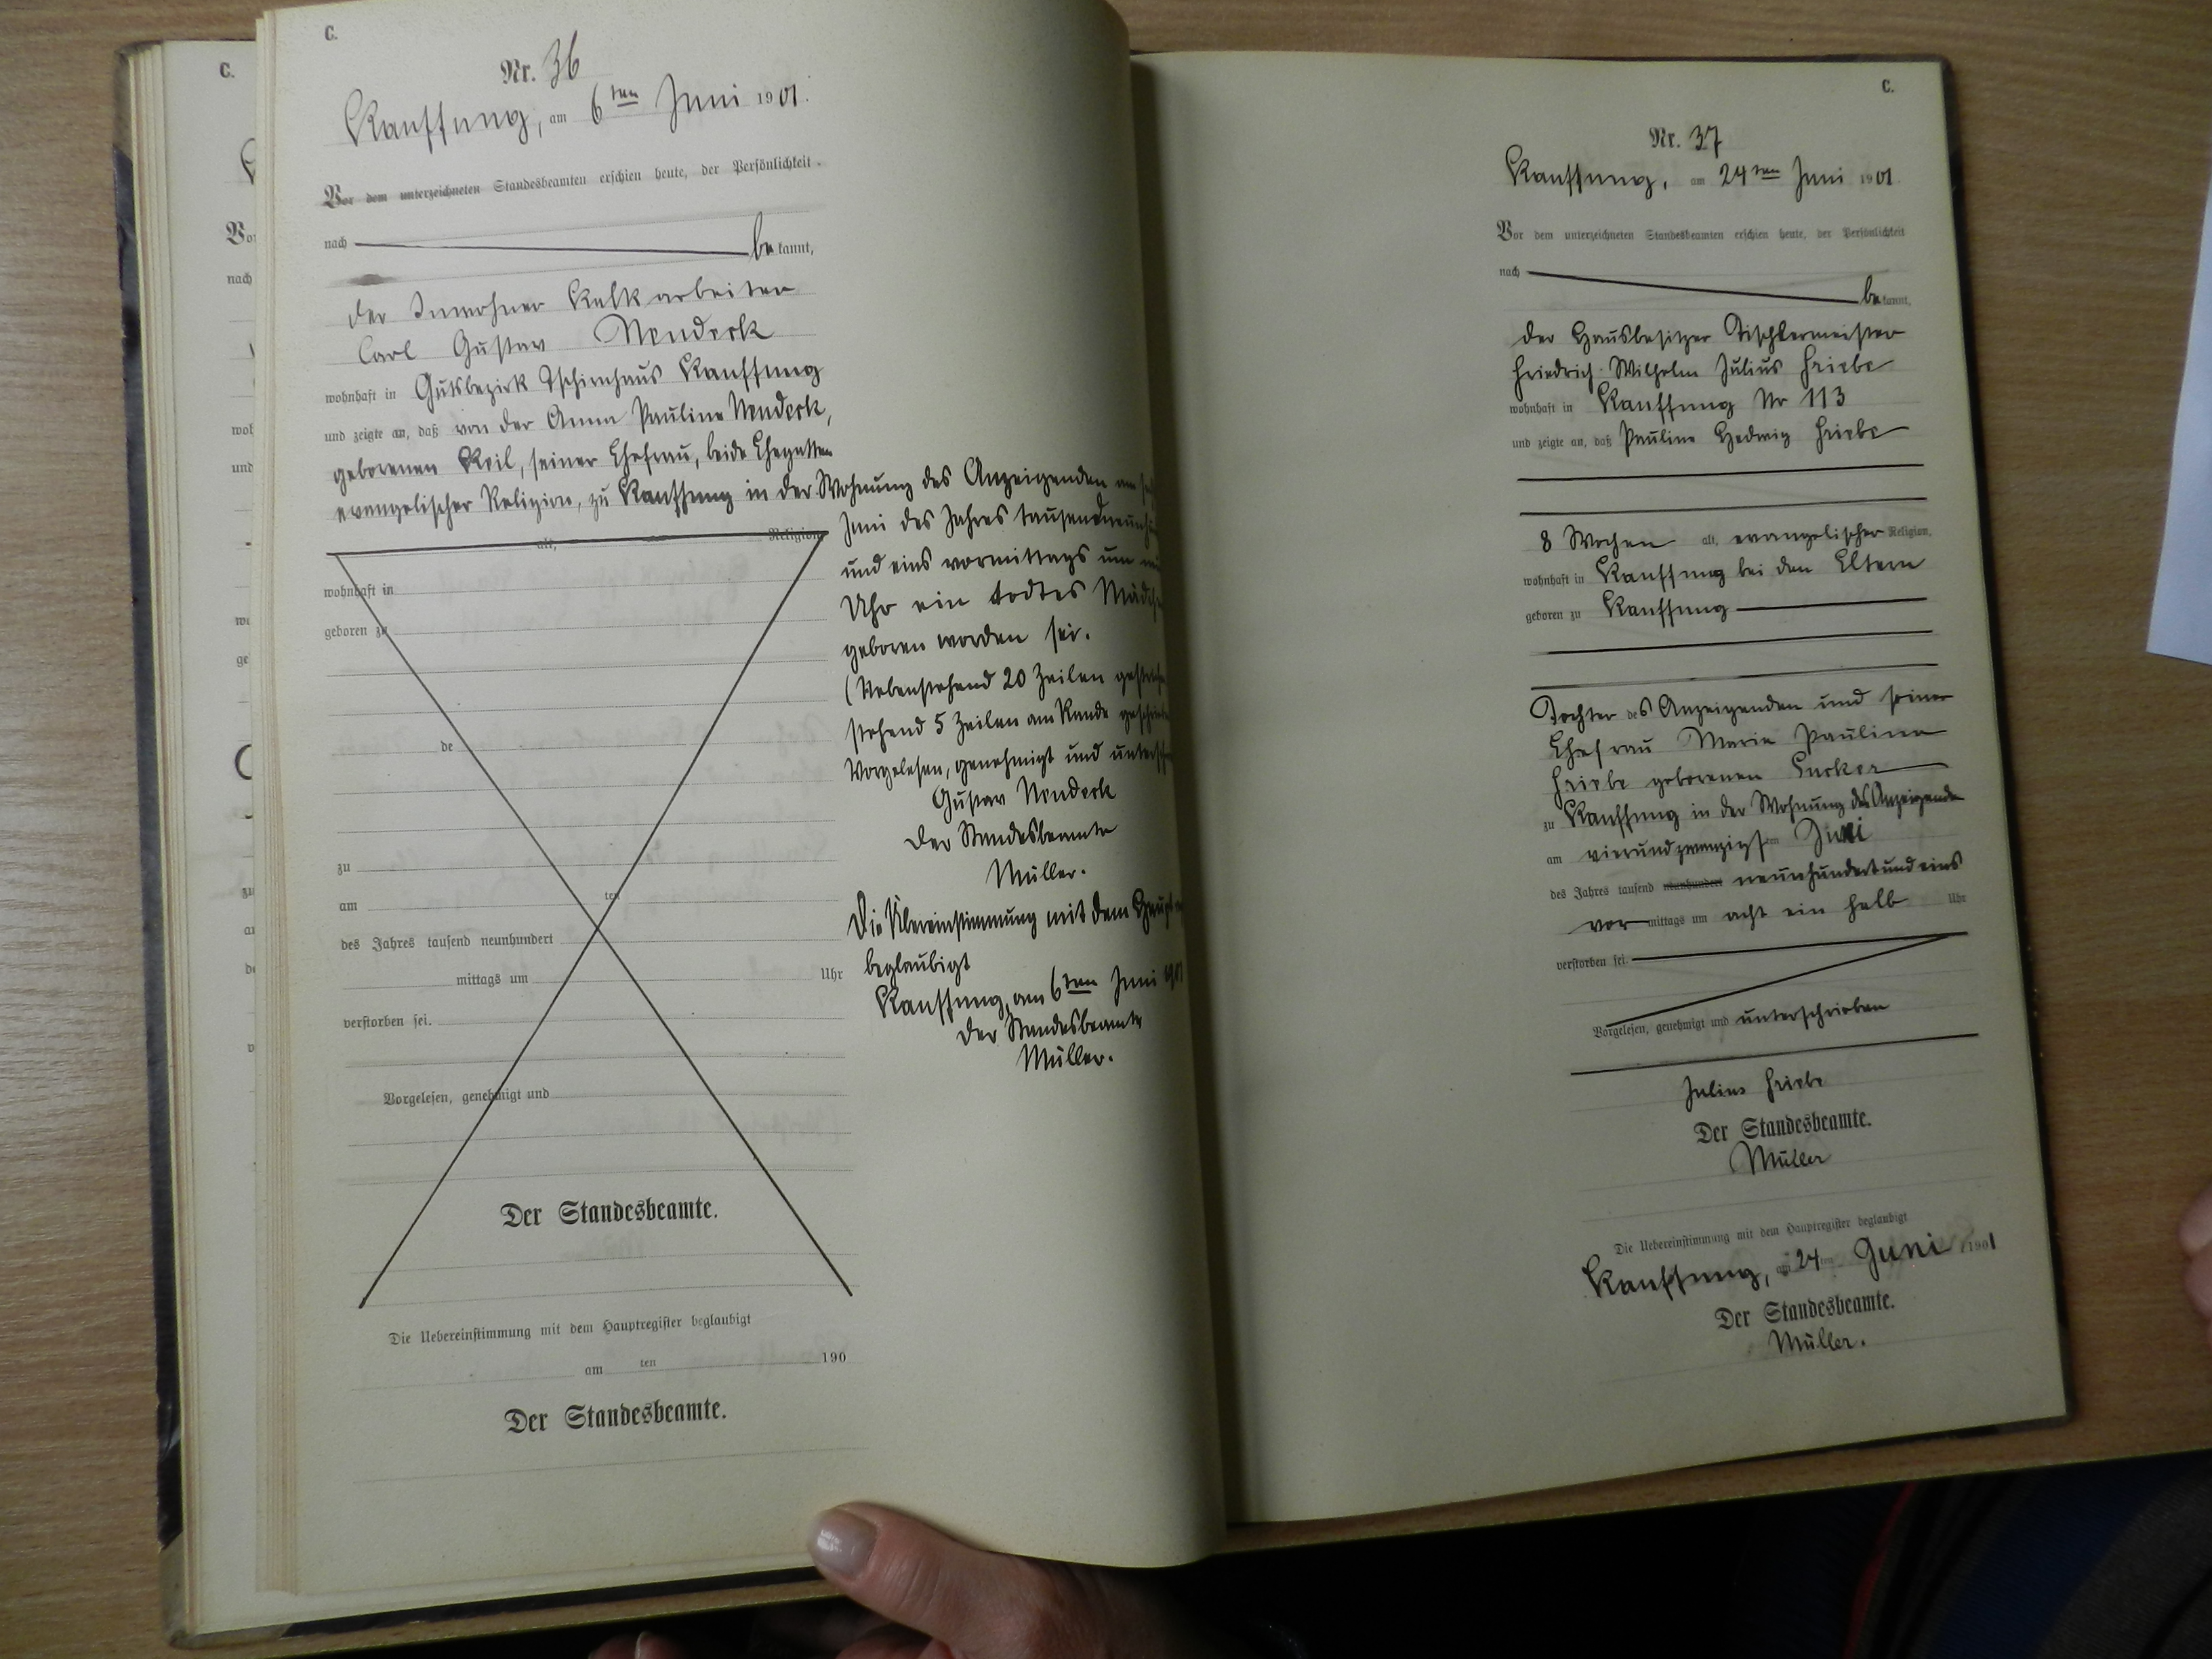 C.
Nr. 36
Kauffung, am 6ten Juni 1901.
Vor dem unterzeichneten Standesbeamten erschien heute, der Persönlichkeit
nach bekannt,
der Inwohner Kalkarbeiter
Carl Gustav
wohnhaft in Gutsbezirk Tschirnhaus Kauffung
und zeigte an, daß von der Anna Pauline
geborenen Keil, seiner Ehefrau, beide Ehegatten
evangelischer Religion, zu Kauffung in der Wohnung des Anzeigenden am
Juni des Jahres tausendneun
und eins vormittags um
Uhr ein todtes
geboren worden sei.
(Nebenstehend 20 Zeilen
stehend 5 Zeilen am Rande
Vorgelesen, genehmigt und
Gustav
Der Standesbeamte
Müller.
Die Übereinstimmung mit dem
beglaubigt
Kauffung, am 6ten Juni 1901
Der Standesbeamte
Müller.
alt, Religion
wohnhaft in
geboren zu
de
zu
am ten
des Jahres tausend neunhundert
mittags um Uhr
verstorben sei.
Vorgelesen, genehmigt und
Der Standesbeamte.
Die Uebereinstimmung mit dem Hauptregister beglaubigt
am ten 190
Der Standesbeamte.
C.
Nr. 37
Kauffung, am 24ten Juni 1901.
Vor dem unterzeichneten Standesbeamten erschien heute, der Persönlichkeit
nach bekannt,
der Hausbesitzer Tischlermeister
Friedrich Wilhelm Julius Friebe
wohnhaft in Kauffung Nr 113
und zeigte an, daß Pauline Hedwig Friebe
8 Wochen alt, evangelischer Religion,
wohnhaft in Kauffung bei den Eltern
geboren zu Kauffung
Tochter des Anzeigenden und seiner
Ehefrau Marie Pauline
Friebe geborenen
zu Kauffung in der Wohnung des Anzeigenden
am vierundzwanzigsten Juni
des Jahres tausend neunhundert neunhundertundeins
vormittags um acht ein halb Uhr
verstorben sei.
Vorgelesen, genehmigt und unterschrieben
Julius Friebe
Der Standesbeamte.
Müller
Die Uebereinstimmung mit dem Hauptregister beglaubigt
Kauffung, am 24ten Juni 1901
Der Standesbeamte.
Müller.
C.
nach